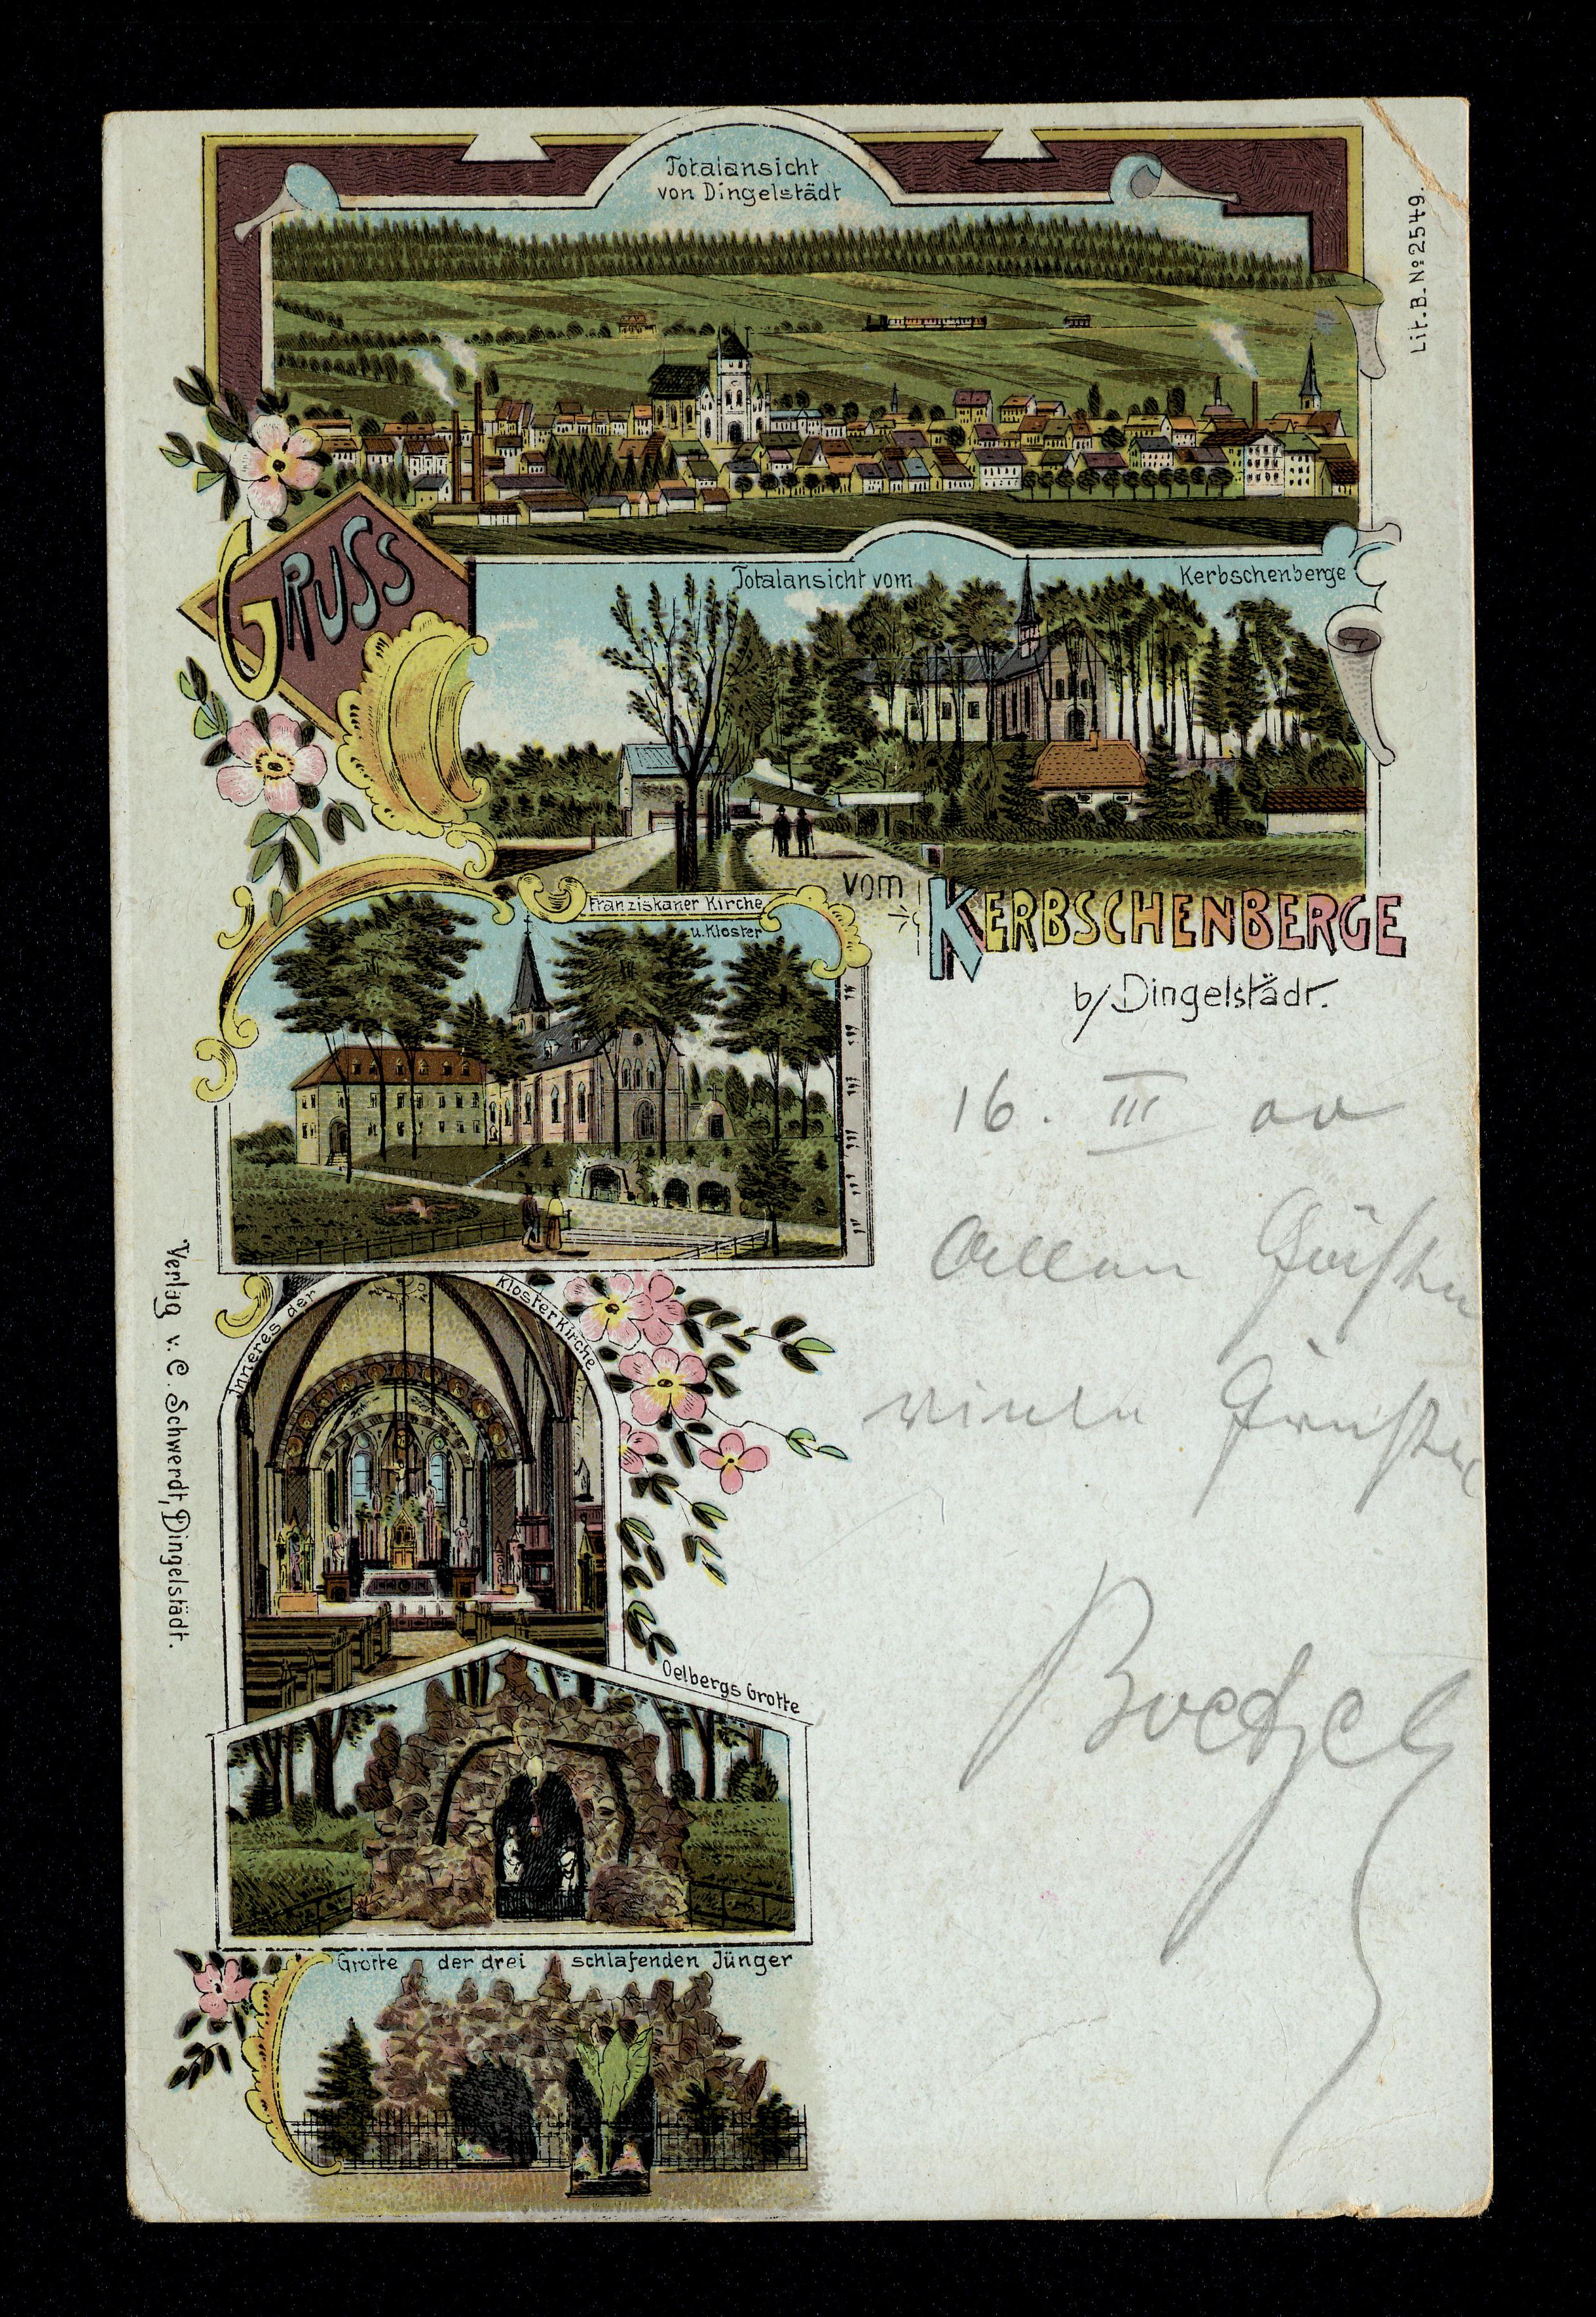 Totalansicht
von Dingelstädt
Lit. B. No 2549.
GRUSS
Totalansicht vom Kerbschenberge
vom
KERBSCHENBERGE
b/ Dingelstädt.
Franziskaner Kirche
u. Kloster
16. III 00
viele Grüße
Inneres der Kloster Kirche
Verlag v. C. Schwerdt, Dingelstädt.
Oelbergs Grotte
Grotte der drei schlafenden Jünger